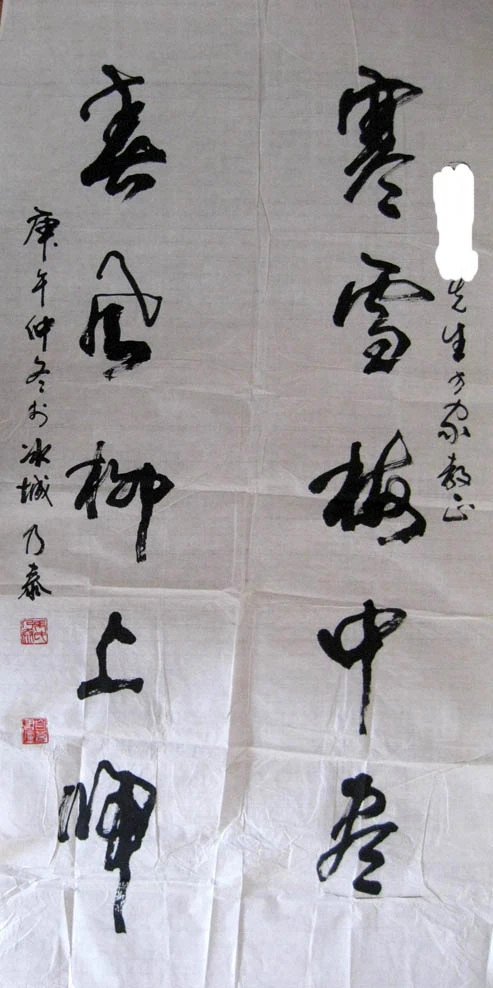 先生方家教正
寒雪梅中尽
春风柳上归
庚午仲冬于冰城 乃泰